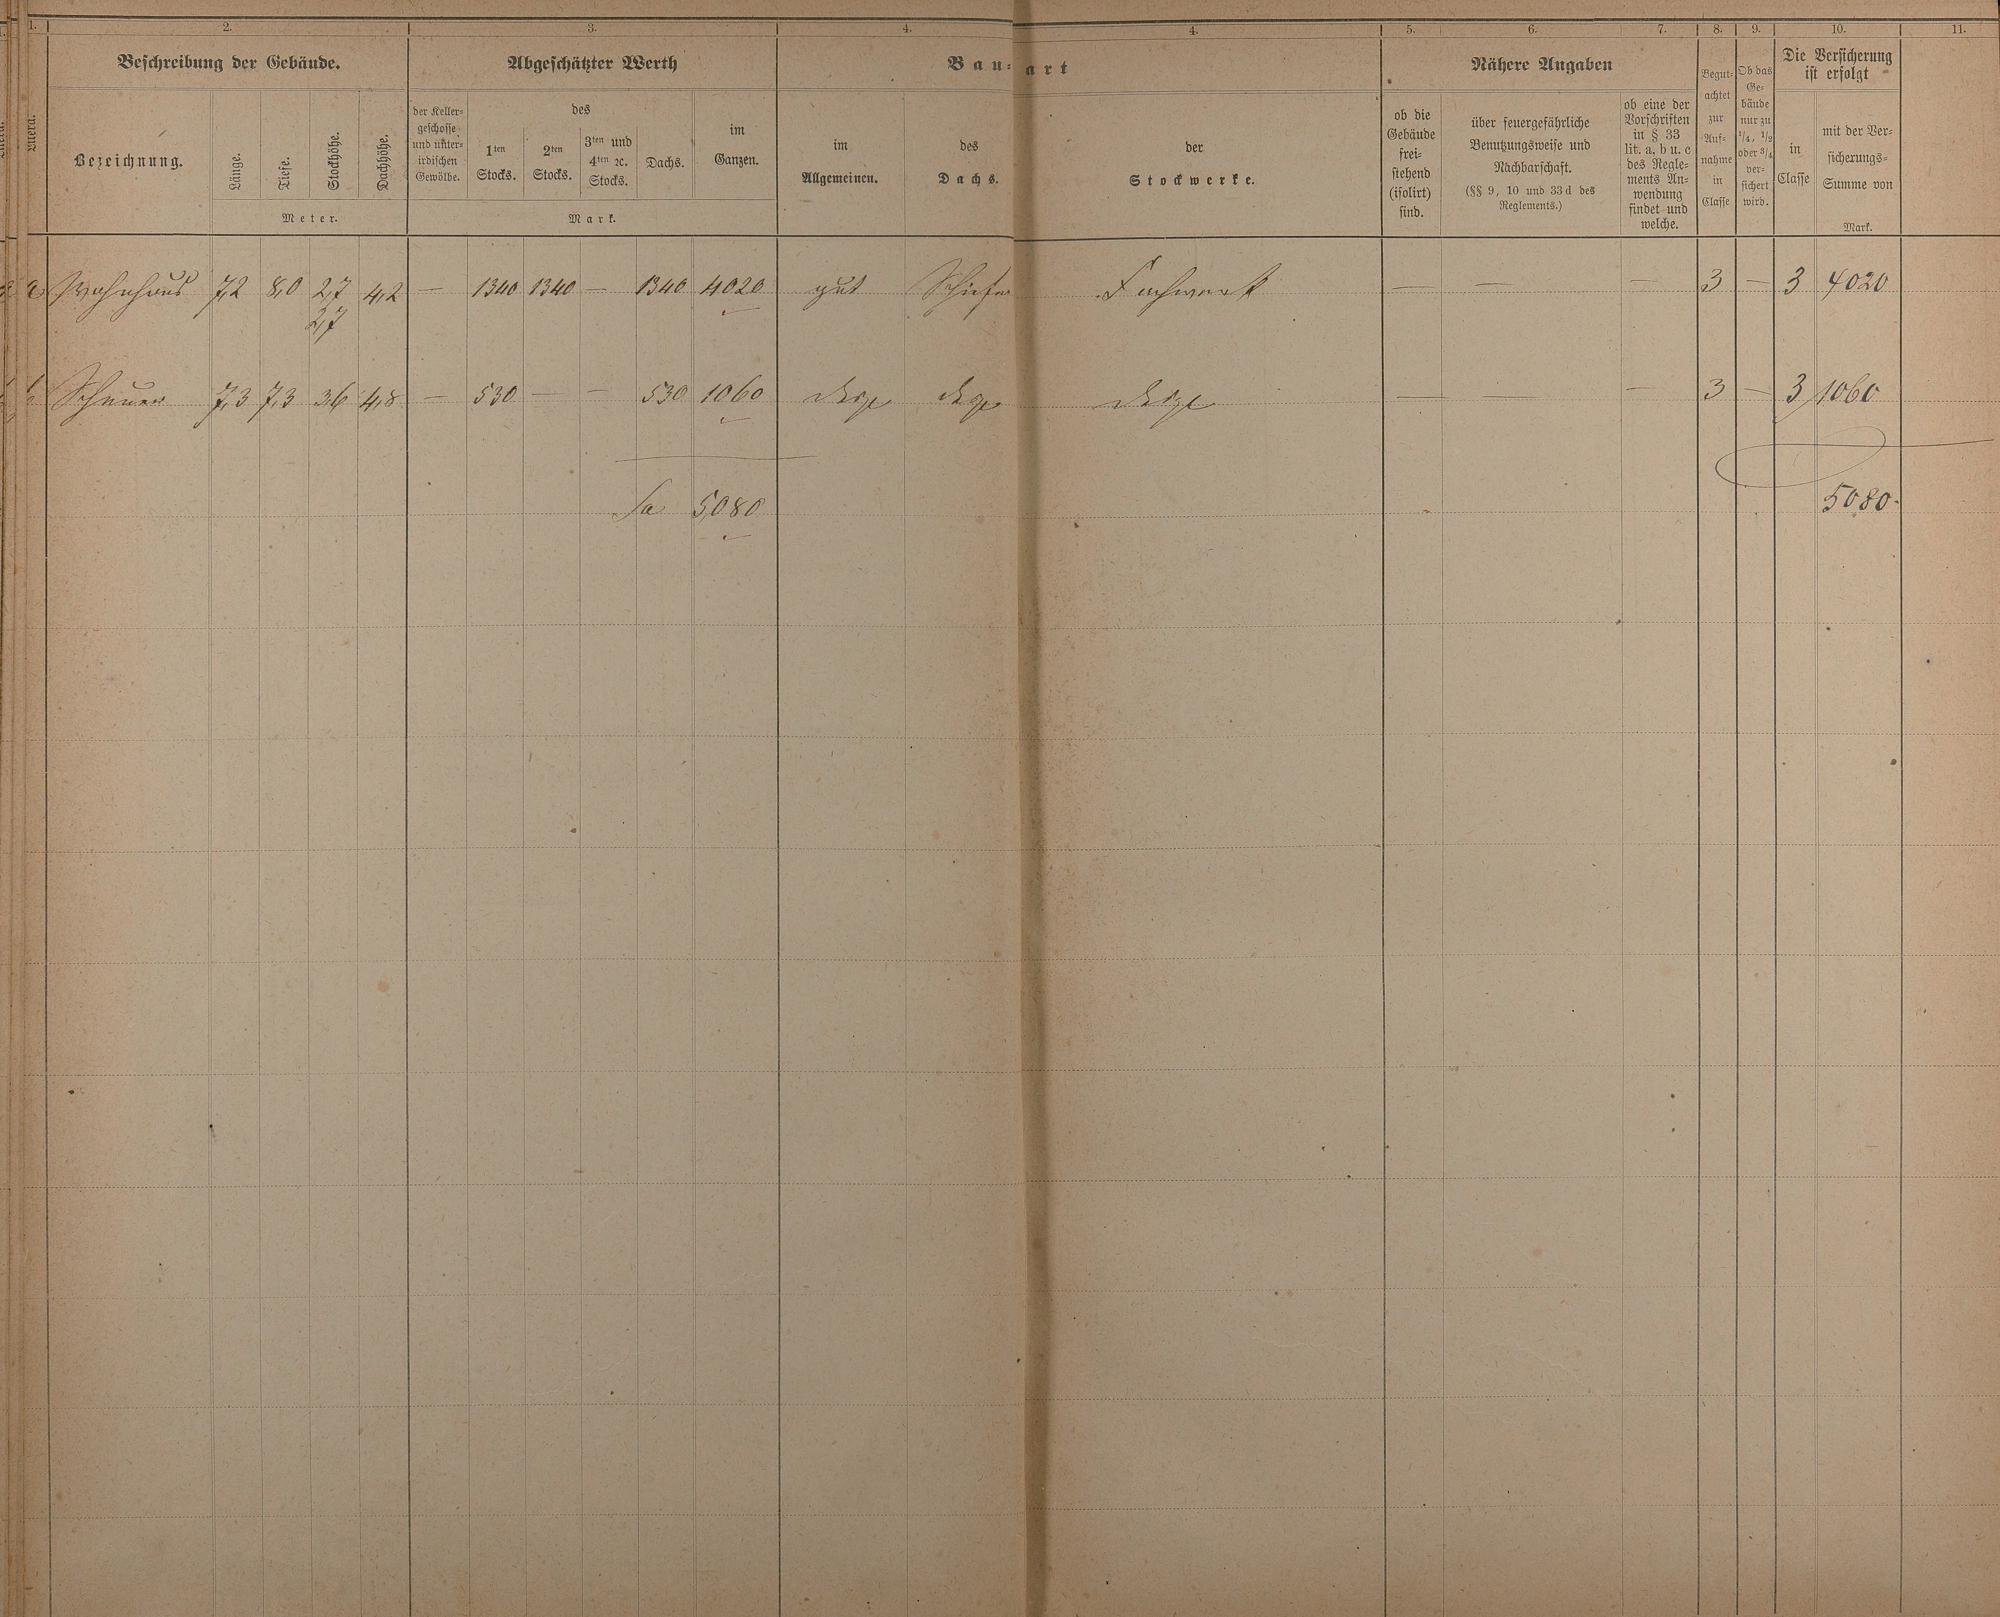 1. 2. 3. 4. 4. 5. 6. 7. 8. 9. 10. 11.
Beschreibung der Gebäude. Abgeschätzter Werth Bau- art Nähere Angaben Die Versicherung
ist erfolgt
Litera.
Bezeichnung.
Länge.
Tiefe.
Stockhöhe.
Dachhöhe.
Meter.
der Keller-
geschosse
und unter-
irdischen
Gewölbe.
des
1ten
Stocks.
2ten
Stocks.
3ten und
4ten ꝛc.
Stocks.
Dachs.
im
Ganzen.
Mark.
im
Allgemeinen.
des
Dachs.
der
Stockwerke.
ob die
Gebäude
frei-
stehend
(isolirt)
sind.
über feuergefährliche
Benutzungsweise und
Nachbarschaft.
(§§ 9, 10 und 33d des
Reglements.)
ob eine der
Vorschriften
in § 33
lit. a, b u. c
des Regle-
ments An-
wendung
findet und
welche.
Begut-
achtet
zur
Auf-
nahme
in
Classe
Ob das
Ge-
bäude
nur zu
1/4, 1/2
oder 3/4
ver-
sichert
wird.
in
Classe
mit der Ver-
sicherungs-
Summe von
Mark.
a Wohnhaus 7,2 8,0 2,7 4,2 — 1340 1340 — 1340 4020 gut Schiefer Fachwerk — — — 3 — 3 4020
2,7
b Scheuer 7,3 7,3 36 4,8 — 530 — — 530 1060 desgl desgl desgl — — — 3 — 3 1060
Sa 5080 5080.